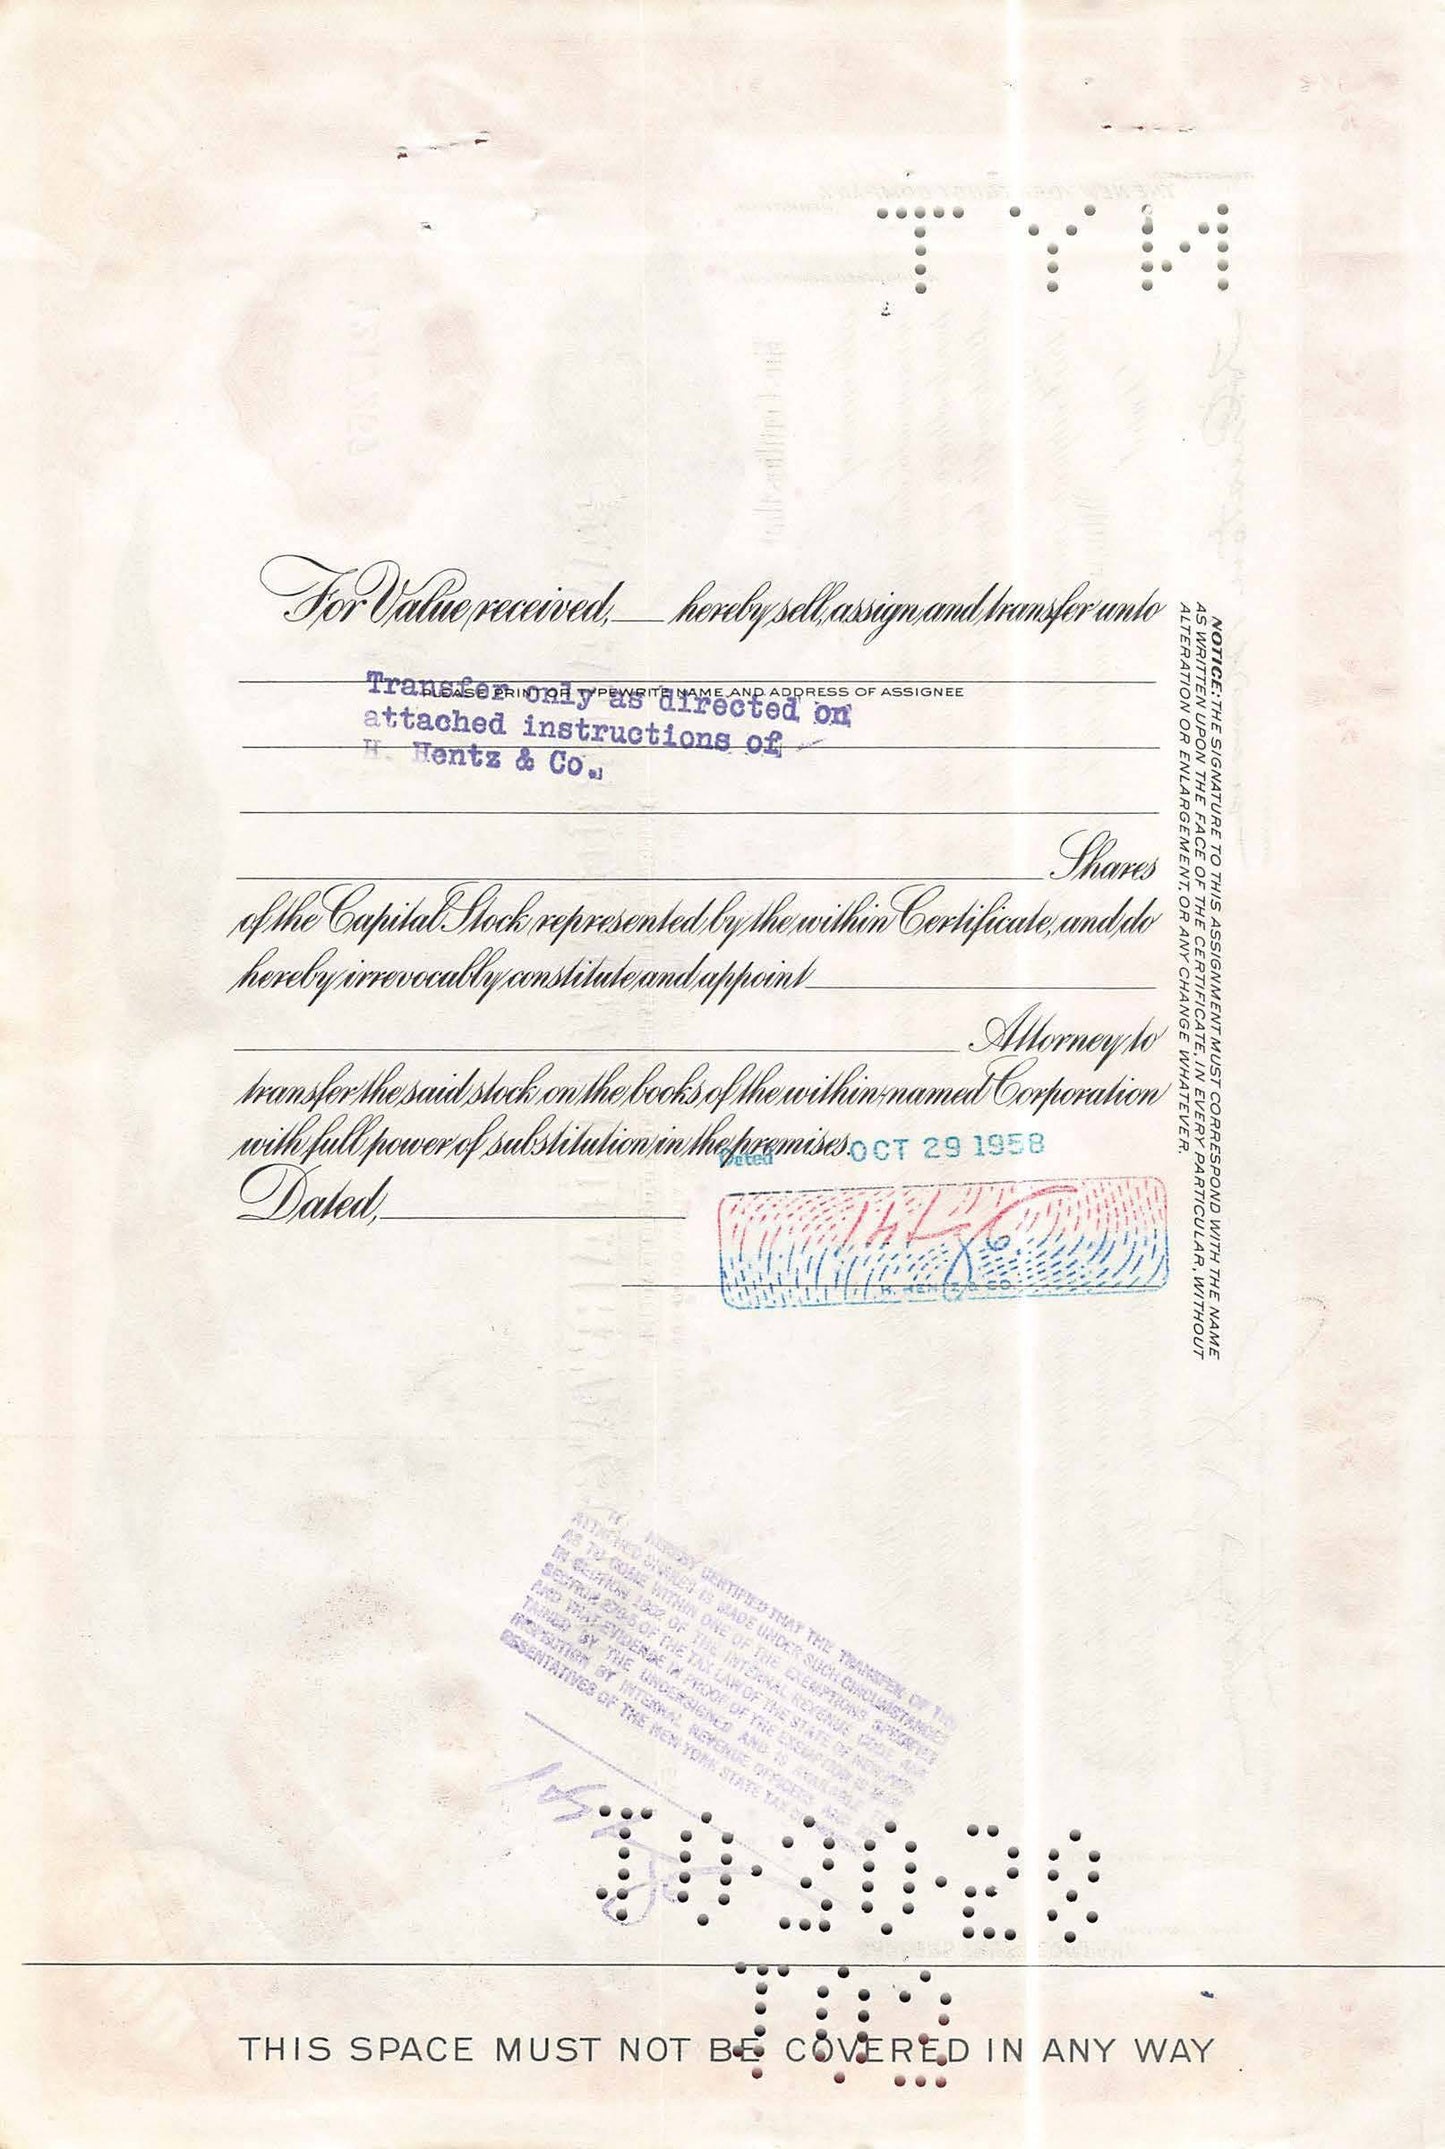 For Value received, ___ hereby sell, assign and transfer unto
PLEASE PRINT OR TYPEWRITE NAME AND ADDRESS OF ASSIGNEE
Transfer only as directed on
attached instructions of
H. Hentz & Co.
Shares
of the Capital Stock represented by the within Certificate, and do
hereby irrevocably constitute and appoint
Attorney to
transfer the said stock on the books of the within-named Corporation
with full power of substitution in the premises.
Dated OCT 29 1958
Dated,
H. HENTZ & CO.
NOTICE: THE SIGNATURE TO THIS ASSIGNMENT MUST CORRESPOND WITH THE NAME
AS WRITTEN UPON THE FACE OF THE CERTIFICATE, IN EVERY PARTICULAR, WITHOUT
ALTERATION OR ENLARGEMENT, OR ANY CHANGE WHATEVER.
HEREBY CERTIFIED THAT THE TRANSFER OF THE
ATTACHED SHARES IS MADE UNDER SUCH CIRCUMSTANCES
AS TO COME WITHIN ONE OF THE EXEMPTIONS SPECIFIED
IN SECTION OF THE INTERNAL REVENUE CODE AND
SECTION 270.5 OF THE TAX LAW OF THE STATE OF NEW YORK
AND THAT EVIDENCE IN PROOF OF THE EXEMPTION IS
TAINED BY THE UNDERSIGNED AND IS AVAILABLE
INSPECTION BY INTERNAL REVENUE OFFICERS AND
RESENTATIVES OF THE NEW YORK STATE TAX
THIS SPACE MUST NOT BE COVERED IN ANY WAY